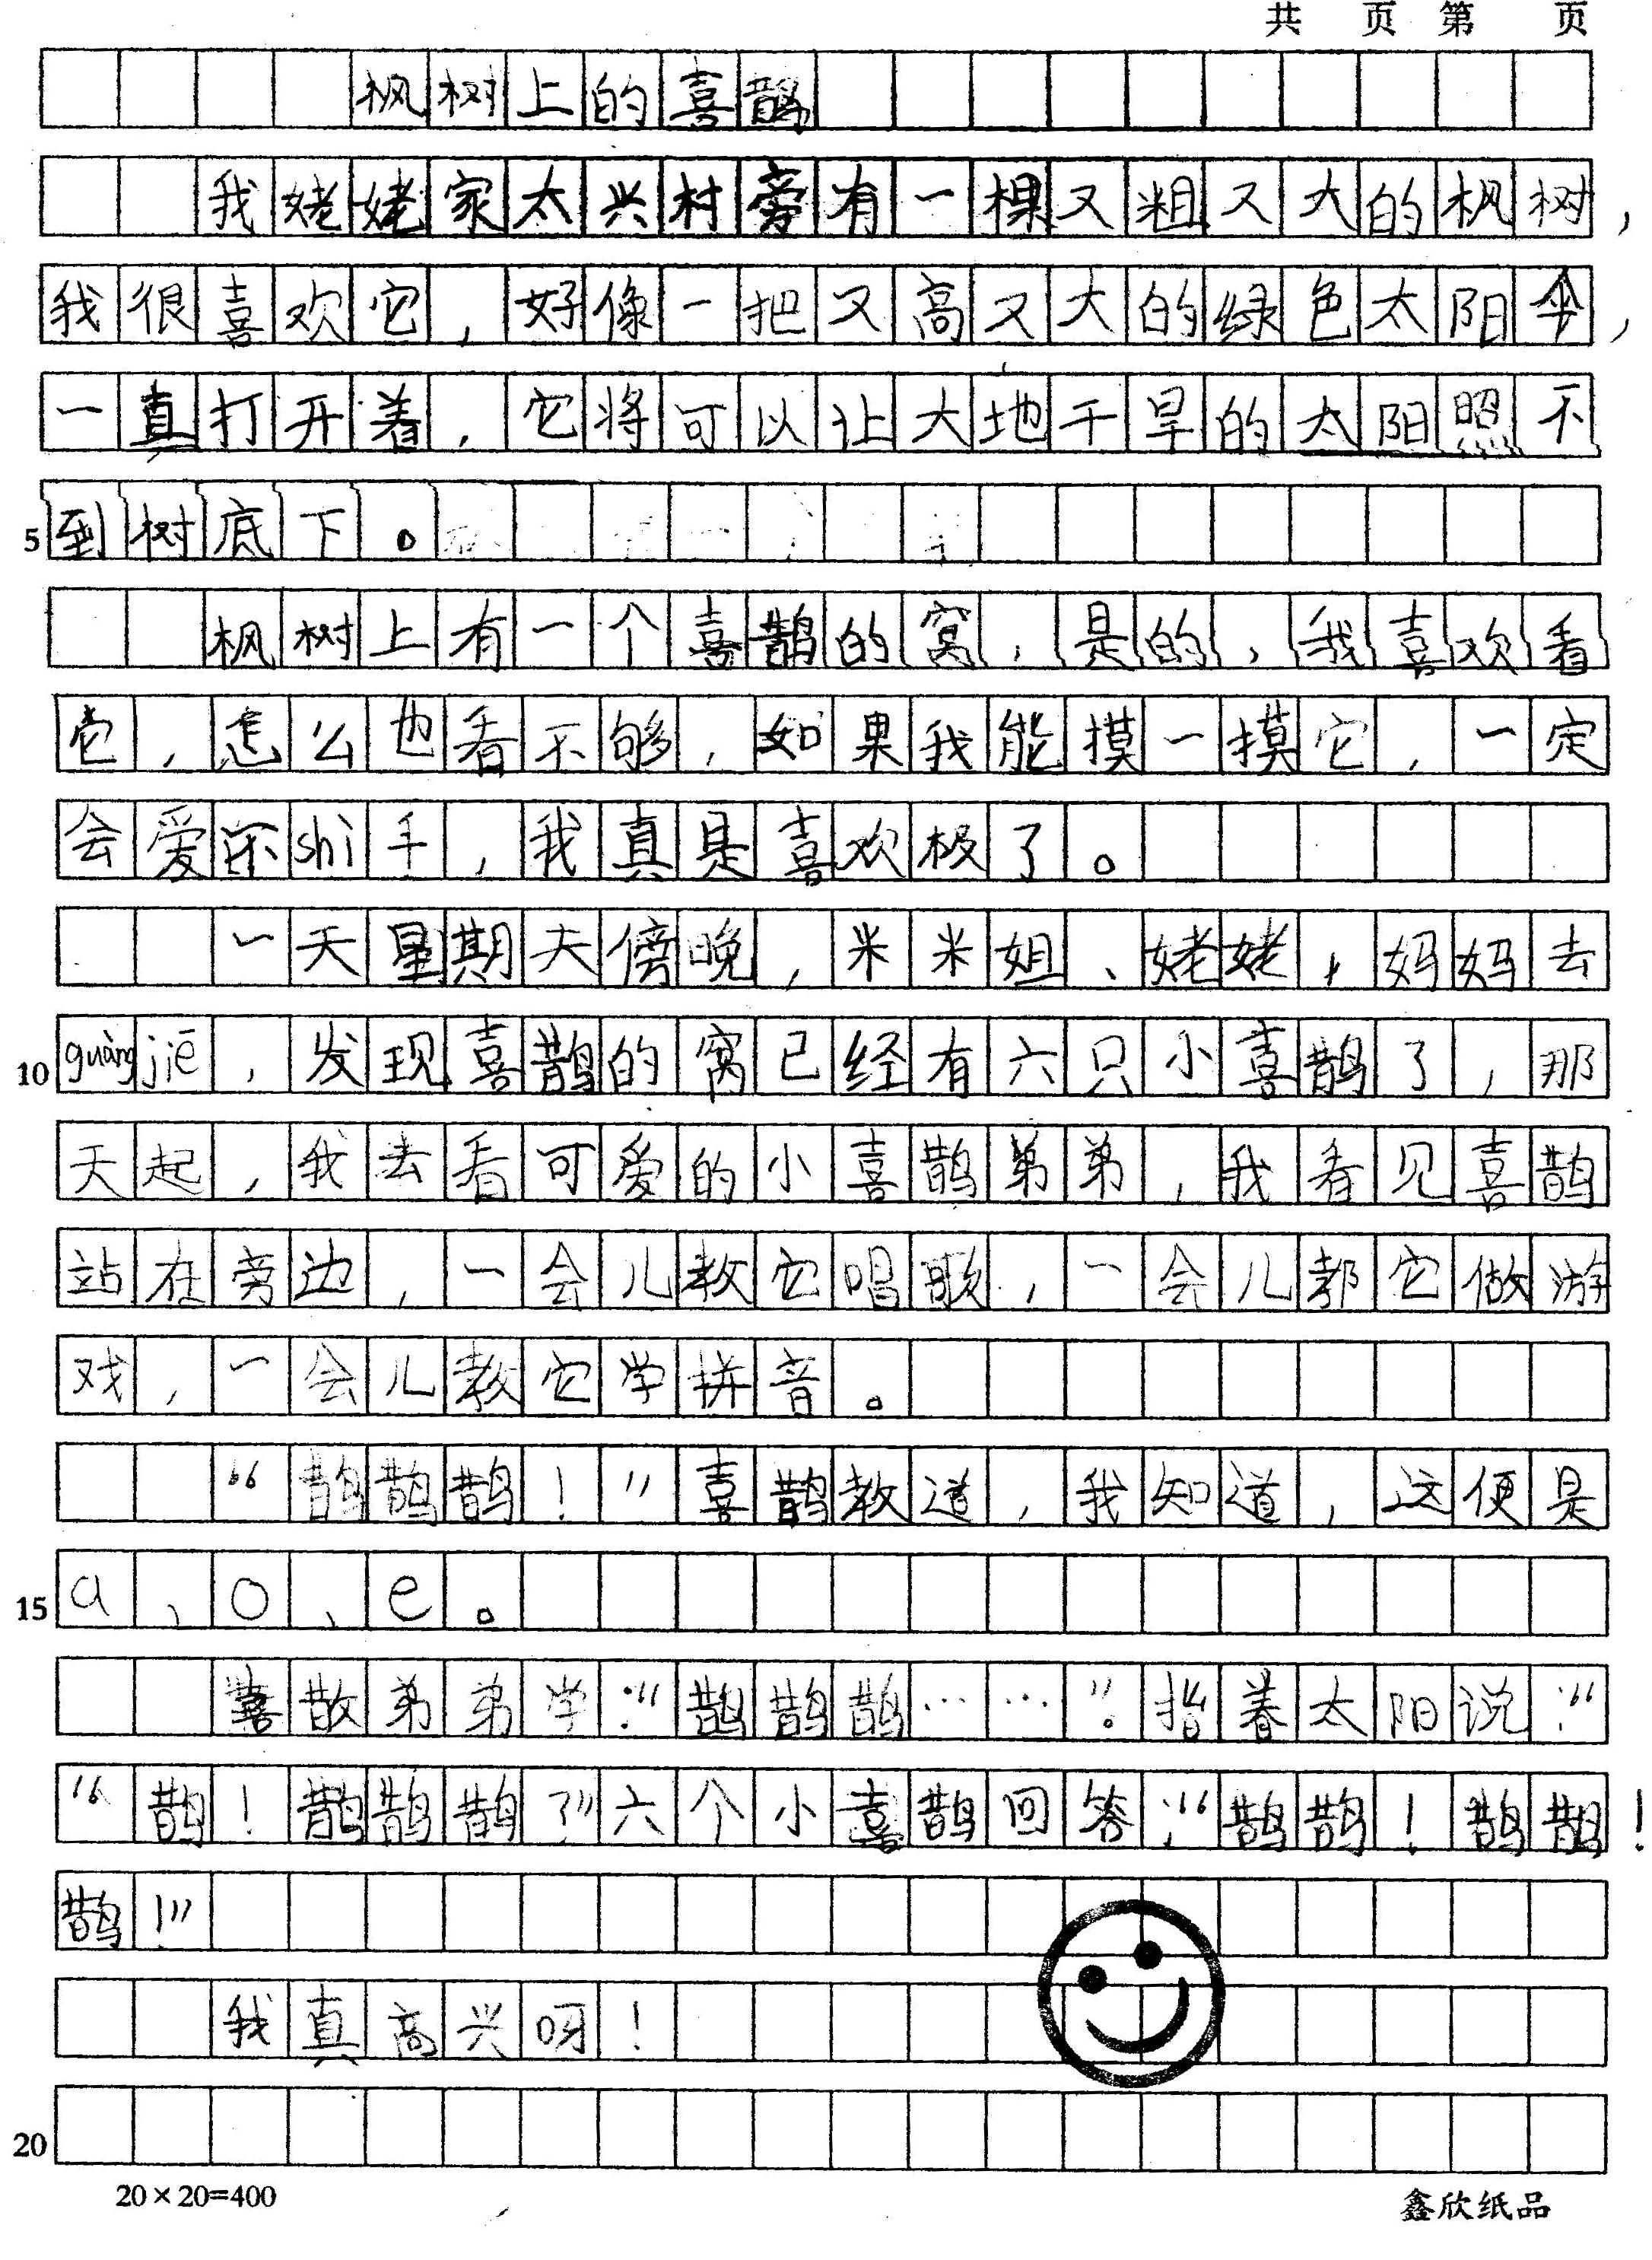 共 页 第 页
枫树上的喜鹊
我姥姥家太兴村旁有一棵又粗又大的枫树，
我很喜欢它，好像一把又高又大的绿色太阳伞，
一真打开着，它将可以让大地干旱的太阳照不
5 到树底下。
枫树上有一个喜鹊的窝，是的，我喜欢看
它，怎么也看不够，如果我能摸一摸它，一定
会爱不shì手，我真是喜欢极了。
一天星期天傍晚，米米姐、姥姥，妈妈去
10 guàng jiē，发现喜鹊的窝已经有六只小喜鹊了，那
天起，我去看可爱的小喜鹊弟弟，我看见喜鹊
站在旁边，一会儿教它唱歌，一会儿教它做游
戏，一会儿教它学拼音。
“鹊鹊鹊！”喜鹊教道，我知道，这便是
15 a、o、e。
喜鹊弟弟学：“鹊鹊鹊……”。指着太阳说：“
“鹊！鹊鹊鹊？”六个小喜鹊回答：“鹊鹊！鹊鹊！
鹊！”
我真高兴呀！
20
20×20=400 鑫欣纸品